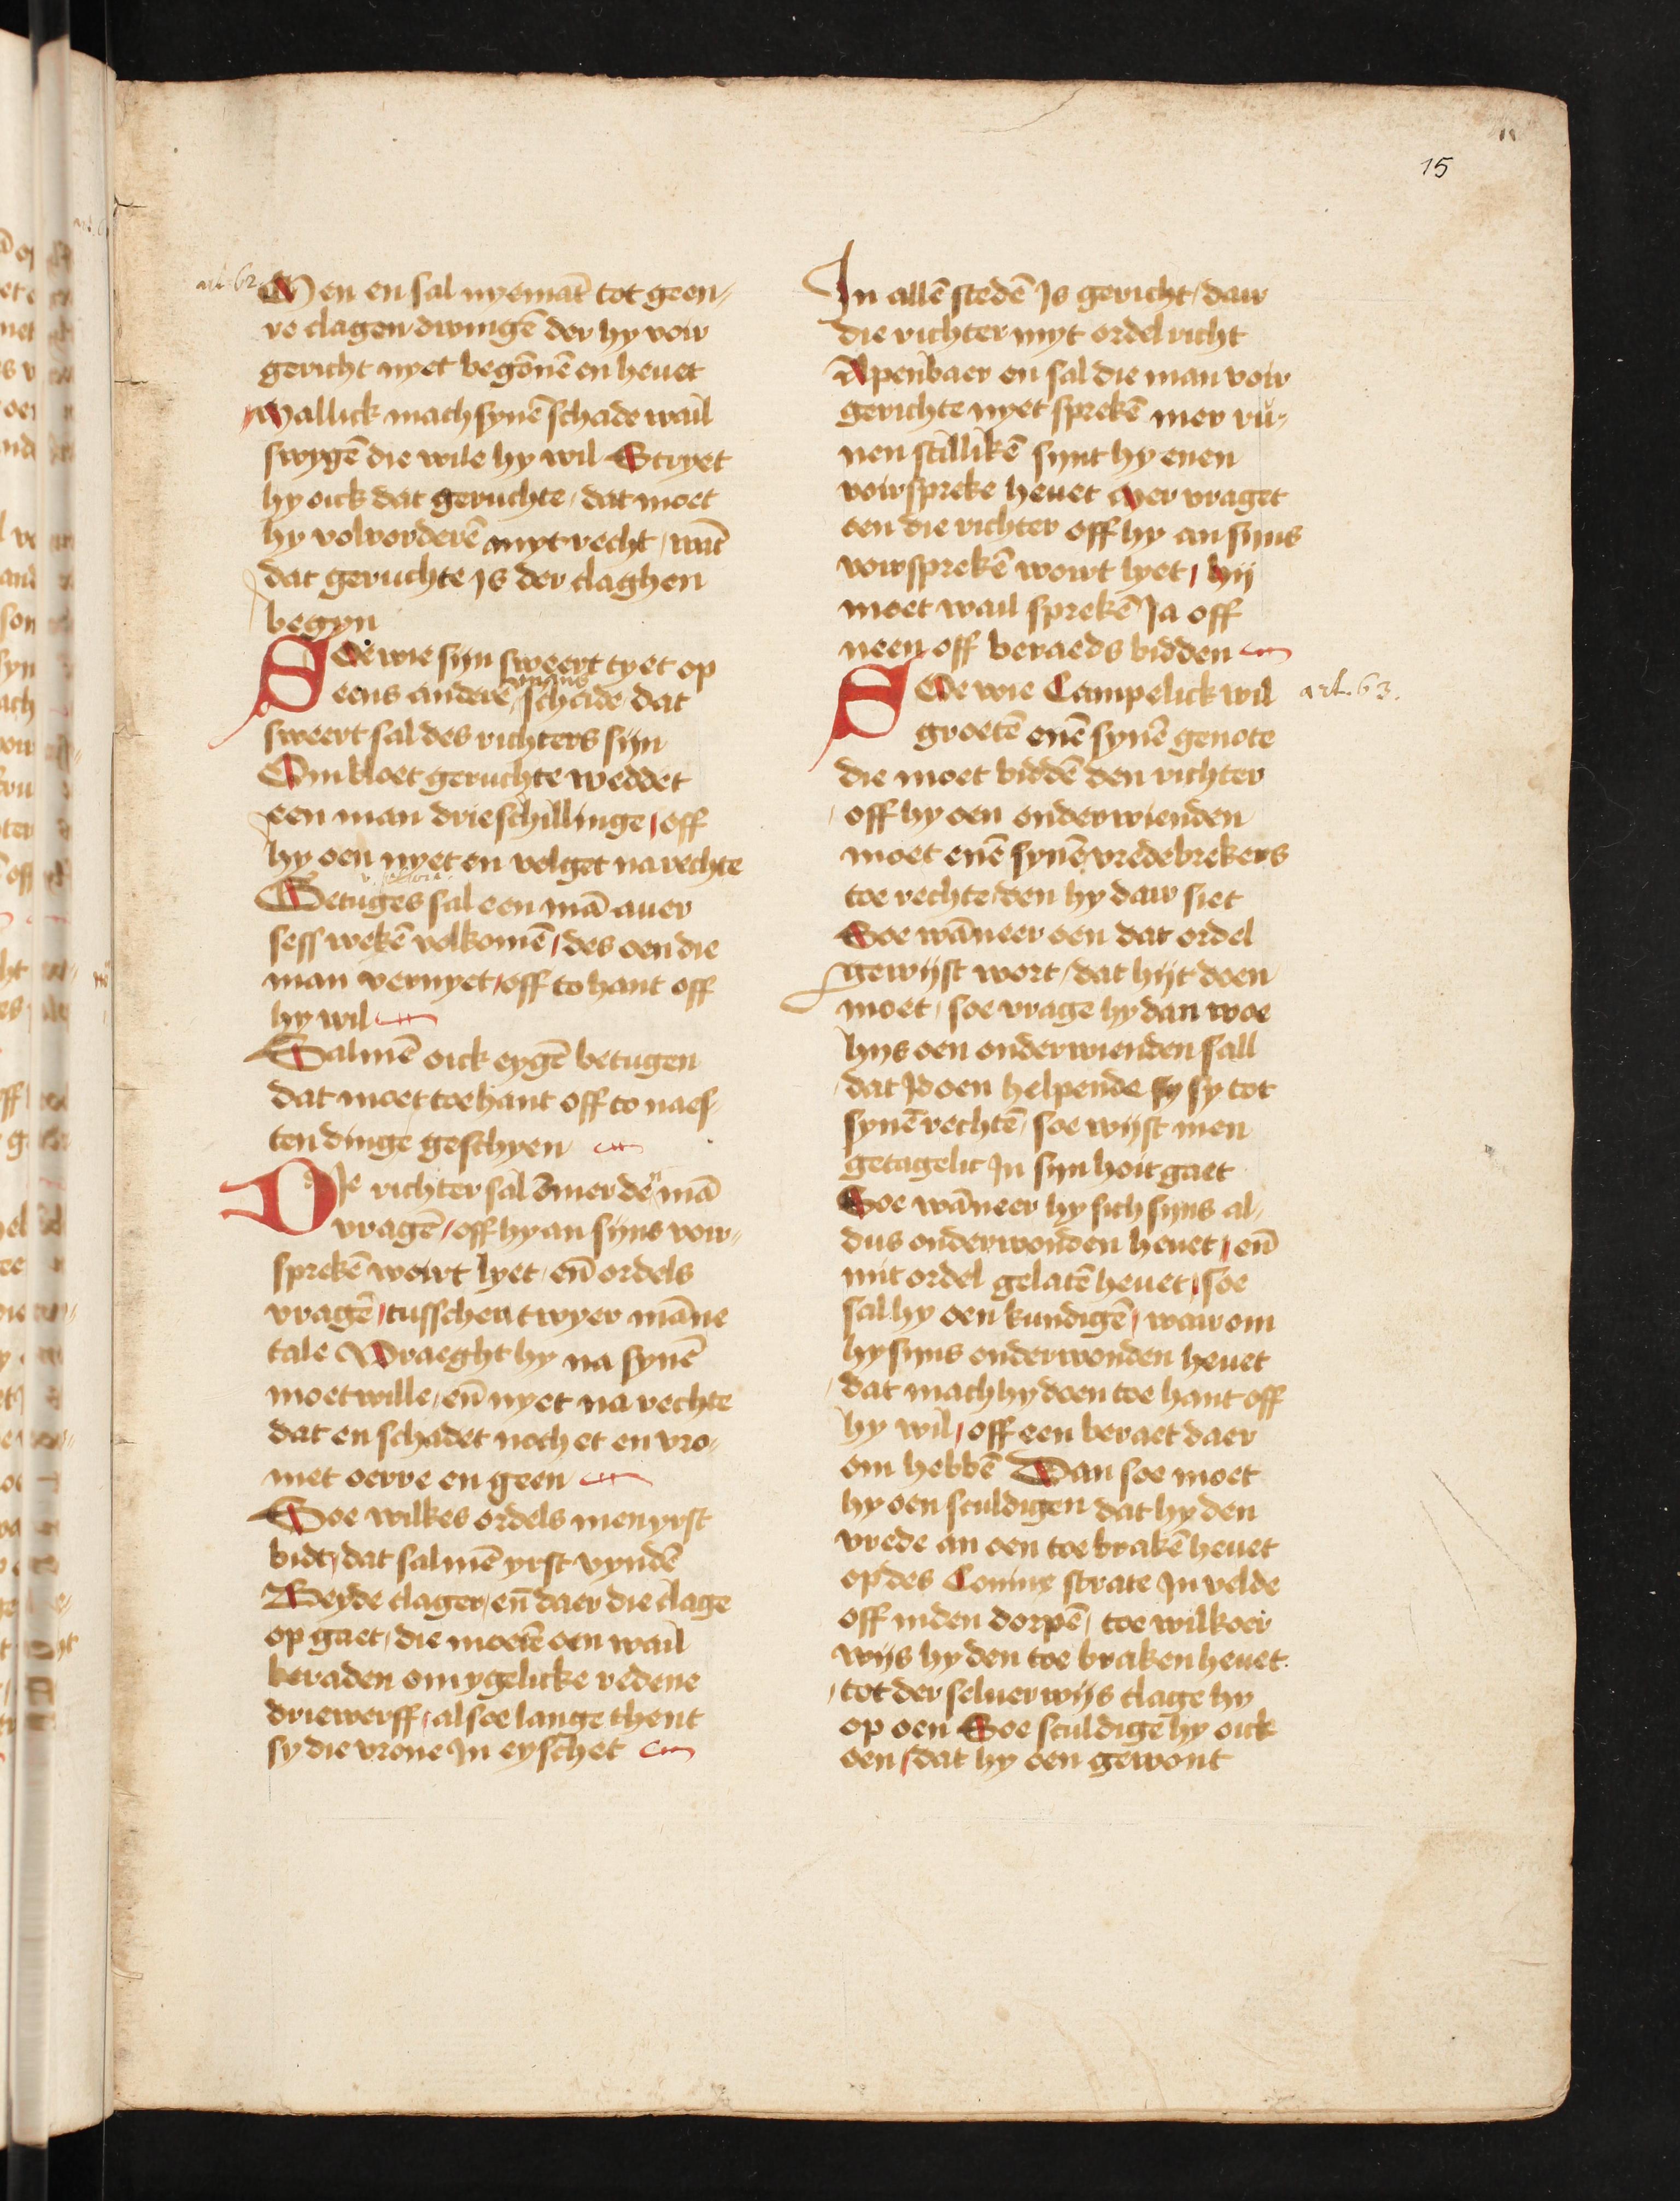 15
art. 62
Men en sal nyemāt tot geen⸗
re clagen dwingē der hy voir
gericht nyet begōnē en heuet
Mallick mach synē schade wail
swygē die wile hy wil Scryet
hy oick dat geruchte / dat moet
hy volvorderē myt recht / wāt
dat geruchte is der claghen
begyn
Soe wie sijn sweert tyet op
eens anderē mans schade dat
sweert sal des richters sijn
Om bloet geruchte weddet
een man drie schillinge / off
hy oen nyet en volget na rechte
Getuges sal een mā auer
sess wekē volkomē / des oen die
man vernyet / off to hant off
hy wil
Salmē oick eygē betugen
dat moet toe hant off to naes⸗
ten dinge geschyen
Die richter sal ōmer den mā
vragē / off hy an sijns voir⸗
sprekē woirt lyet / en̄ ordels
vragē / tusschen twyer māne
tale Vraeght hy na synē
moetwille / en̄ nyet na rechte
dat en schadet noch et en vro⸗
met oerre en geen
Soe wilkes ordels men yrst
bidt / dat salmē yrst vyndē
Beyde clager / en̄ daer die clage
op gaet / die moetē oen wail
beraden om ygelicke redene
driewerff / alsoe lange thent
sy die vrone in eyschet
In allē stedē is gericht / dair
die richter myt ordel richt
Apenbaer en sal die man voir
gerichte nyet sprekē mer ru⸗
nen stillikē sijnt hy enen
voirspreke heuet Mer vraget
oen die richter off hy an sijns
voirsprekē woirt lyet / hij
moet wail sprekē Ja off
neen off beraeds bidden
Soe wie Campelick wil
art. 63.
groetē enē synē genote
die moet biddē den richter
off hy oen onderwienden
moet enē synē vredebrekers
toe rechte / den hy dair siet
Soe wāneer oen dat ordel
gewijst wort / dat hijt doen
moet / soe vrage hy dan woe
hijs oen onderwienden sall
dat id oen helpende sy sy tot
synē rechtē / soe wijst men
getagelic in sijn hoit gaet
Soe wāneer hy sich sijns al⸗
dus onderwonden heuet / en̄
mit ordel gelatē heuet / soe
sal hy oen kundigē / wair om
hy sijns onderwonden heuet
dat mach hy doen toe hant off
hy wil / off een beraet daer
om hebbē Dan soe moet
hy oen sculdigen dat hy den
vrede an oen toe brakē heuet
op des Conincx strate in velde
off inden dorpē / toe wilkoer
wijs hy den toe braken heuet
tot der seluer wijs clage hy
op oen Soe sculdigē hy oick
oen / dat hy oen gewont